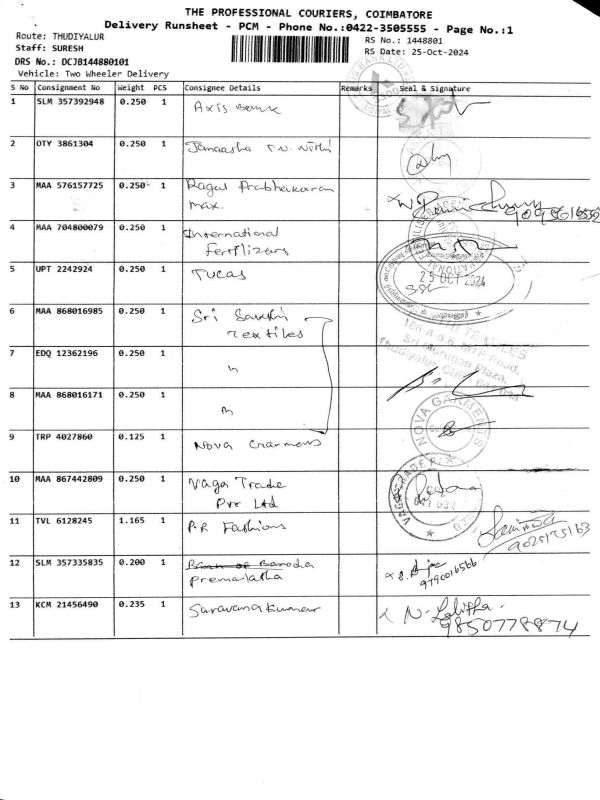 THE PROFESSIONAL COURIERS, COIMBATORE
Delivery Runsheet - PCM - Phone No.:0422-3505555 - Page No.:1
Route: THUDIYALUR
RS No.: 1448801
Staff: SURESH
RS Date: 25-Oct-2024
DRS No.: DCJB144880101
Vehicle: Two Wheeler Delivery
S No Consignment No Weight PCS Consignee Details Remarks Seal & Signature
1 SLM 357392948 0.250 1 Axis Bank
2 OTY 3861304 0.250 1
3 MAA 576157725 0.250 1 Ragul Prabhakaran
max.
4 MAA 704800079 0.250 1 International
Fertilizers
5 UPT 2242924 0.250 1 Tucas
25 OCT 2024
6 MAA 868016985 0.250 1 Sri
Textiles
186 MTP Road,
Sri Murugan Plaza,
7 EDQ 12362196 0.250 1 "
8 MAA 868016171 0.250 1 "
NOVA GARMENS
9 TRP 4027860 0.125 1 Nova Garmens
10 MAA 867442809 0.250 1 Vaga Trade
Pvt Ltd
11 TVL 6128245 1.165 1 P.R Fashions
9025175163
12 SLM 357335835 0.200 1 Bank of Baroda
Premalatha
9790016566
13 KCM 21456490 0.235 1 Saravanakumar
N. Lalitha
9850778874